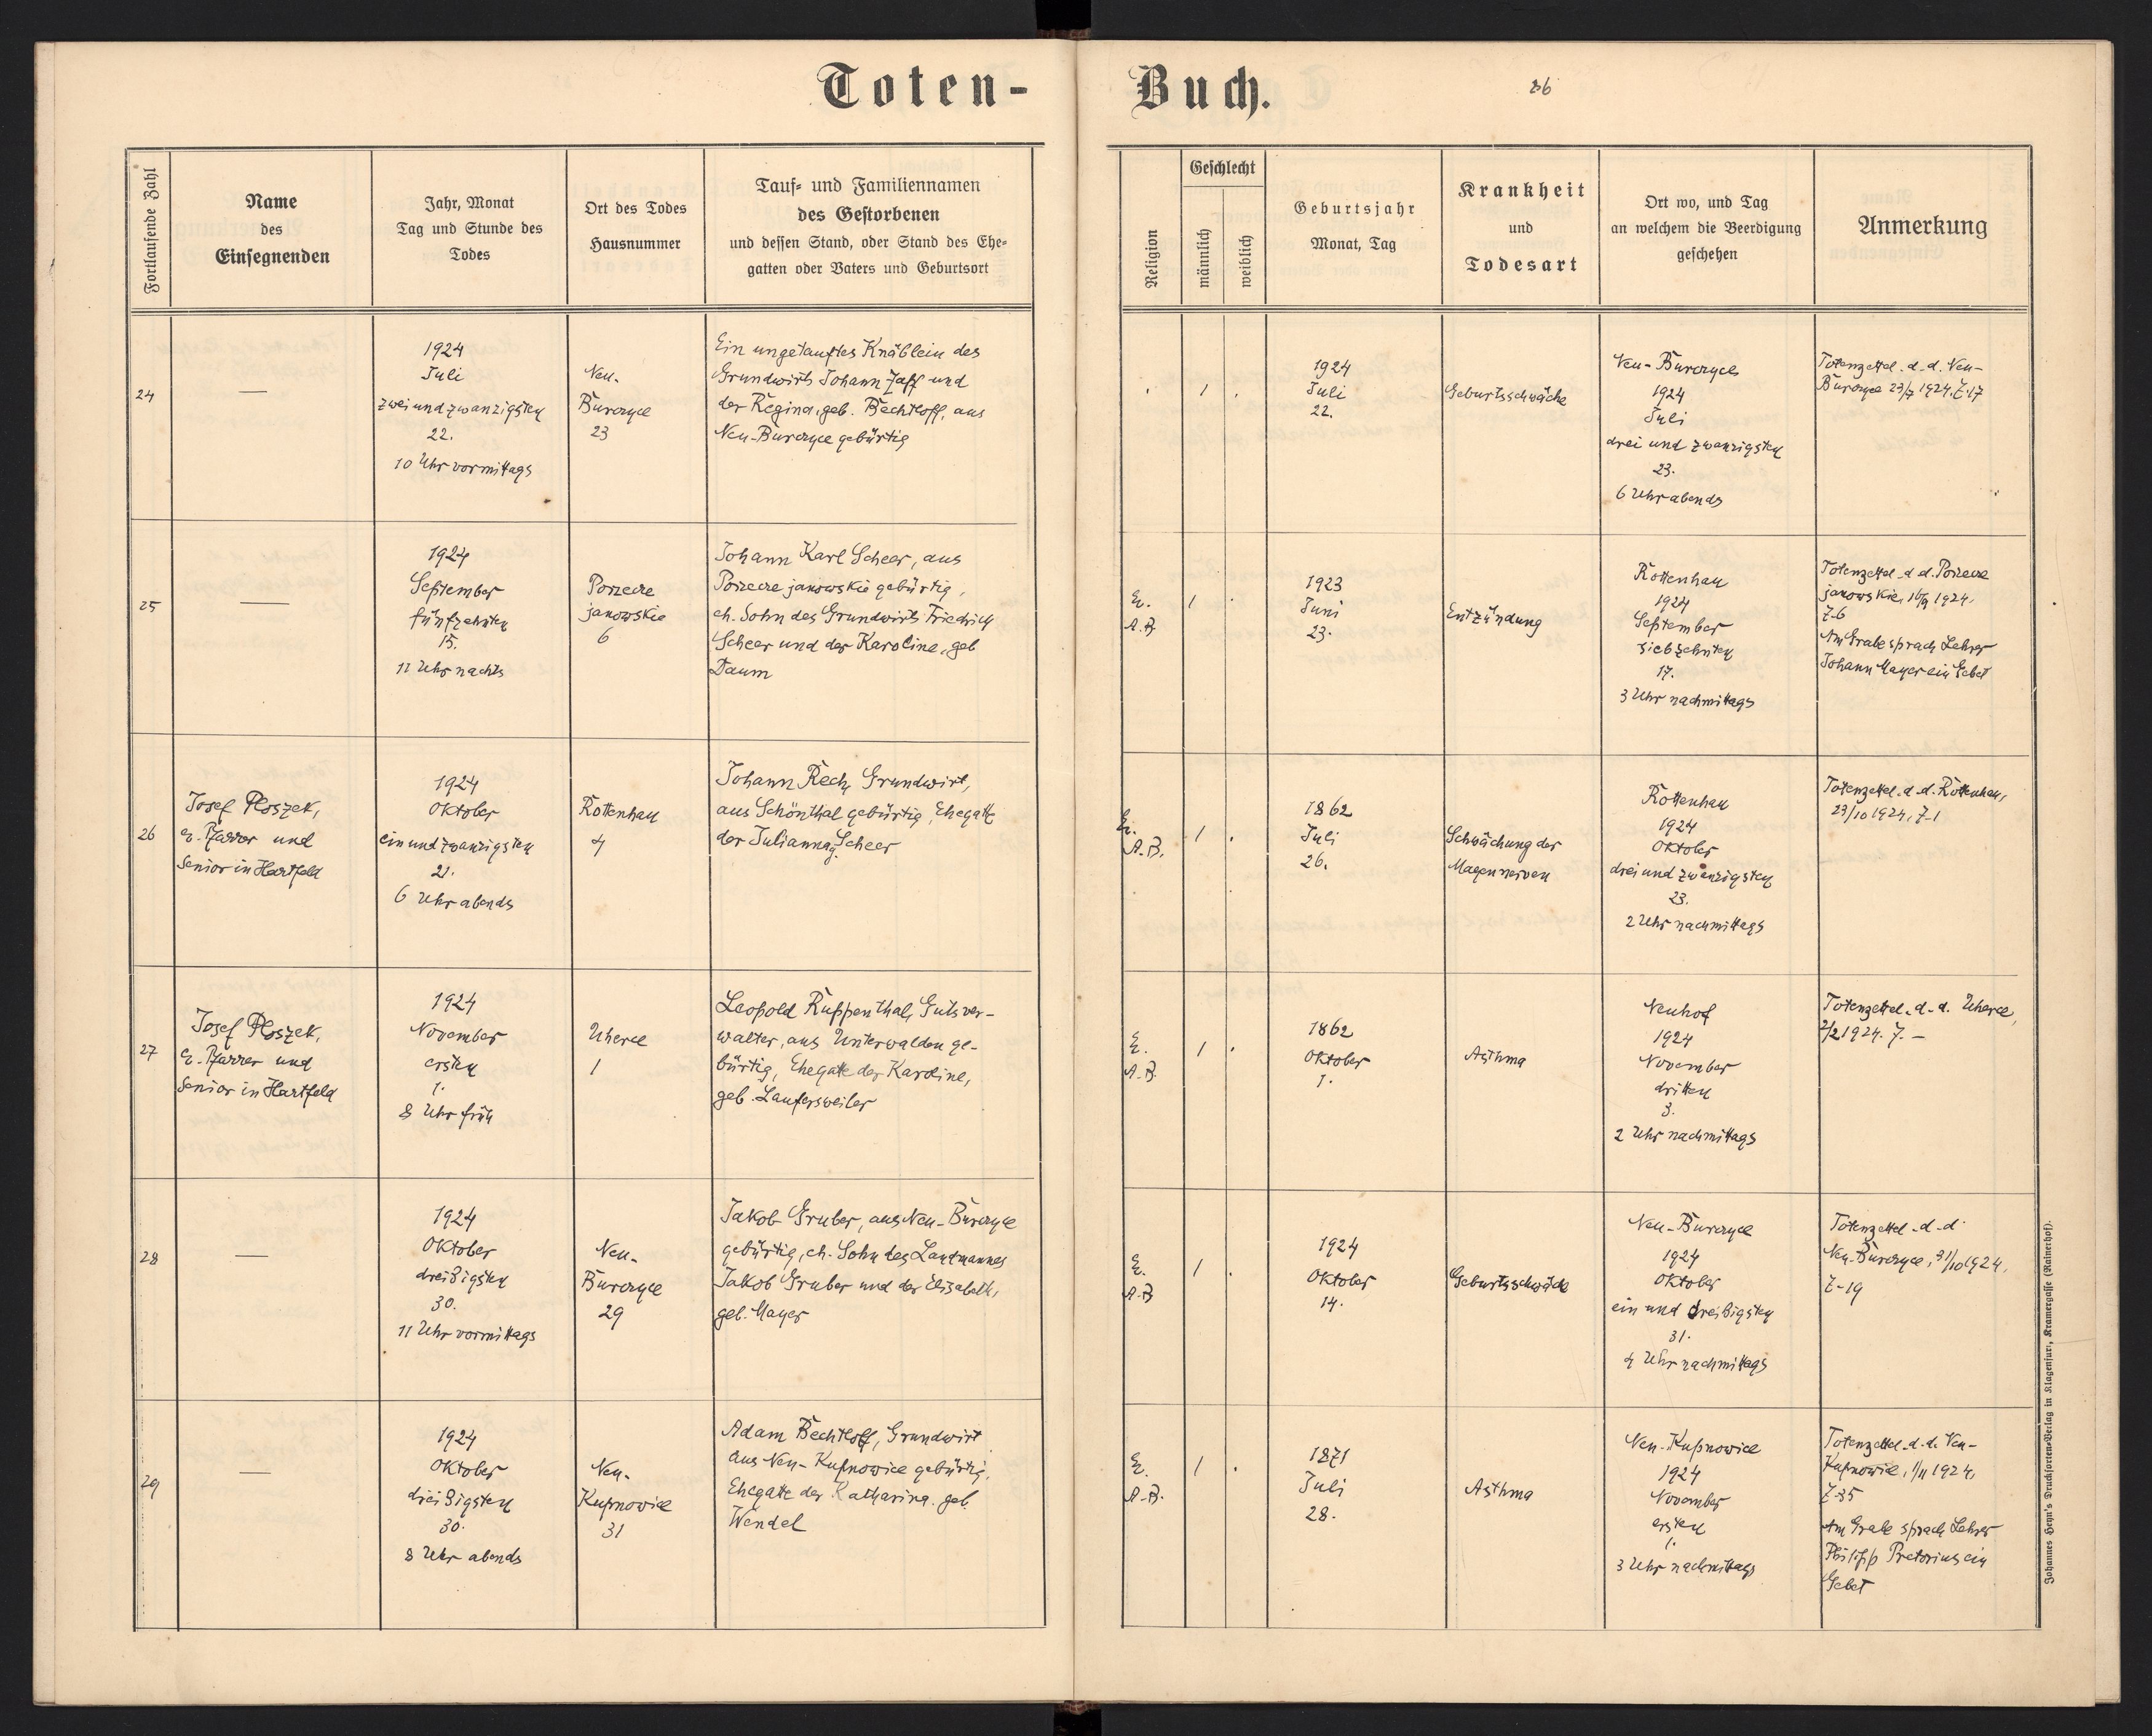 Toten-
Buch.
36
Fortlaufende Zahl
Name
des
Einsegnenden
Jahr, Monat
Tag und Stunde des
Todes
Ort des Todes
Hausnummer
Tauf- und Familiennamen
des Gestorbenen
und dessen Stand, oder Stand des Ehe-
gatten oder Vaters und Geburtsort
Religion
Geschlecht
männlich
weiblich
Geburtsjahr
Monat, Tag
Krankheit
und
Todesart
Ort wo, und Tag
an welchem die Beerdigung
geschehen
Anmerkung
24
—
1924
Juli
zwei und zwanzigsten
22.
10 Uhr vormittags
Neu-
Burczyce
23
Ein ungetauftes Knäblein des
Grundwirts Johann Jaff und
der Regina, geb. Bechtloff, aus
Neu-Burczyce gebürtig
1
1924
Juli
22.
Geburtsschwäche
Neu-Burczyce
1924
Juli
drei und zwanzigsten
23.
6 Uhr abends
Totenzettel d. d. Neu-
Burczyce 23/7 1924. Z-17
25
—
1924
September
fünfzehnten
15.
11 Uhr nachts
Porzecze
janowskie
6
Johann Karl Scheer, aus
Porzecze janowskie gebürtig,
eh. Sohn des Grundwirts Friedrich
Scheer und der Karoline, geb
Daum
Ev.
A.B.
1
1923
Juni
23.
Entzündung
Rottenhan
1924
September
siebzehnten
17.
3 Uhr nachmittags
Totenzettel d. d. Porzecze
janowskie, 16/9 1924,
Z-6
Am Grabe sprach Lehrer
Johann Mayer ein Gebet
26
Josef Ploszek,
ev. Pfarrer und
Senior in Hartfeld
1924
Oktober
ein und zwanzigsten
21.
6 Uhr abends
Rottenhan
4
Johann Rech, Grundwirt,
aus Schönthal gebürtig, Ehegatte
der Julianna g. Scheer
Ev.
A.B.
1
1862
Juli
26.
Schwächung der
Magennerven
Rottenhan
1924
Oktober
drei und zwanzigsten
23.
2 Uhr nachmittags
Totenzettel d. d. Rottenhan,
23/10 1924, Z-1
27
Josef Ploszek,
ev. Pfarrer und
Senior in Hartfeld
1924
November
ersten
1.
8 Uhr früh
Uherce
1
Leopold Ruppenthal, Gutsver-
walter, aus Unterwalden ge-
bürtig, Ehegatte der Karoline,
geb. Laufersweiler
Ev.
A.B.
1
1862
Oktober
1.
Asthma
Neuhof
1924
November
dritten
3.
2 Uhr nachmittags
Totenzettel d. d. Uherce,
1924. Z. -
28
—
1924
Oktober
dreißigsten
30.
11 Uhr vormittags
Neu-
Burczyce
29
Jakob Gruber, aus Neu-Burczyce
gebürtig, eh. Sohn des Landmannes
Jakob Gruber und der Elisabeth,
geb. Mayer
Ev.
A.B
1
1924
Oktober
14.
Geburtsschwäche
Neu-Burczyce
1924
Oktober
ein und dreißigsten
31.
4 Uhr nachmittags
Totenzettel d. d.
Neu-Burczyce, 31/10 1924,
Z-19
29
—
1924
Oktober
dreißigsten
30.
8 Uhr abends
Neu-
Kupnowice
31
Adam Bechtloff, Grundwirt
aus Neu-Kupnowice gebürtig,
Ehegatte der Katharina. geb
Wendel
Ev.
A.B.
1
1871
Juli
28.
Asthma
Neu-Kupnowice
1924
November
ersten
1.
3 Uhr nachmittags
Totenzettel d. d. Neu-
Kupnowice, 1/11 1924,
Z-35
Am Grabe sprach Lehrer
Philipp Pretorius ein
Gebet
Johannes Heyn's Drucksorten-Verlag in Klagenfurt, Kramergasse (Rainerhof).